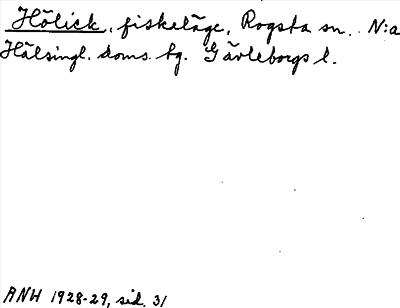 Hölick, fiskeläge, Rogsta sn. N:a
Hälsingl. doms. tg. Gävleborgs l.
ANH 1928-29, sid. 31